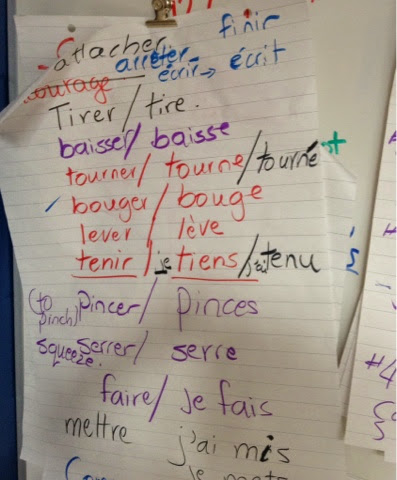 finir
attacher
arrêter
écrir → écrit
courage
Tirer / tire.
baisser / baisse
tourner / tourne / tourné
bouger / bouge
lever / lève
tenir / je tiens / j'ai tenu
(to pinch) pincer / pinces
squeeze. serrer / serre
faire / je fais
mettre j'ai mis
je mets
#4